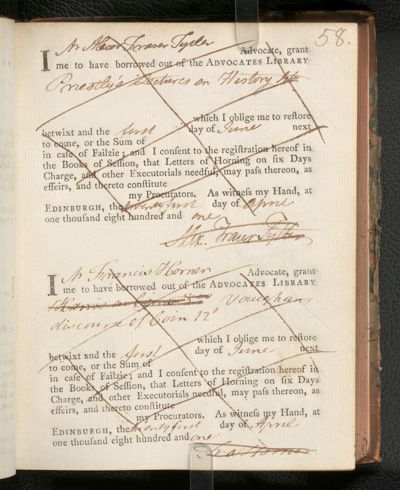 58.
I Mr Alexr Fraser Tytler Advocate, grant
me to have borrowed out of the ADVOCATES LIBRARY
Priestly's Lectures on History
which I oblige me to reſtore
betwixt and the first day of June next
to come, or the Sum of
in caſe of Failzie; and I conſent to the regiſtration hereof in
the Books of Seſſion, that Letters of Horning on ſix Days
Charge, and other Executorials needful, may paſs thereon, as
effeirs, and thereto conſtitute
my Procurators. As witneſs my Hand, at
EDINBURGH, the twenty first day of April
one thouſand eight hundred and one
Alexr. Fraser Tytler
I Mr Francis Horner Advocate, grant
me to have borrowed out of the ADVOCATES LIBRARY
Vaughan's
discourse of Coin 12º
which I oblige me to reſtore
betwixt and the first day of June next
to come, or the Sum of
in caſe of Failzie; and I conſent to the regiſtration hereof in
the Books of Seſſion, that Letters of Horning on ſix Days
Charge, and other Executorials needful, may paſs thereon, as
effeirs, and thereto conſtitute
my Procurators. As witneſs my Hand, at
EDINBURGH, the twenty first day of April
one thouſand eight hundred and one
Horner